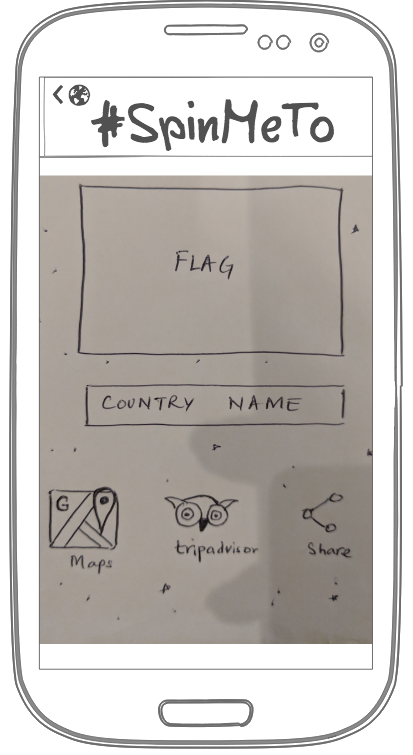 #SpinMeTo
FLAG
COUNTRY NAME
G
Maps
tripadvisor
Share